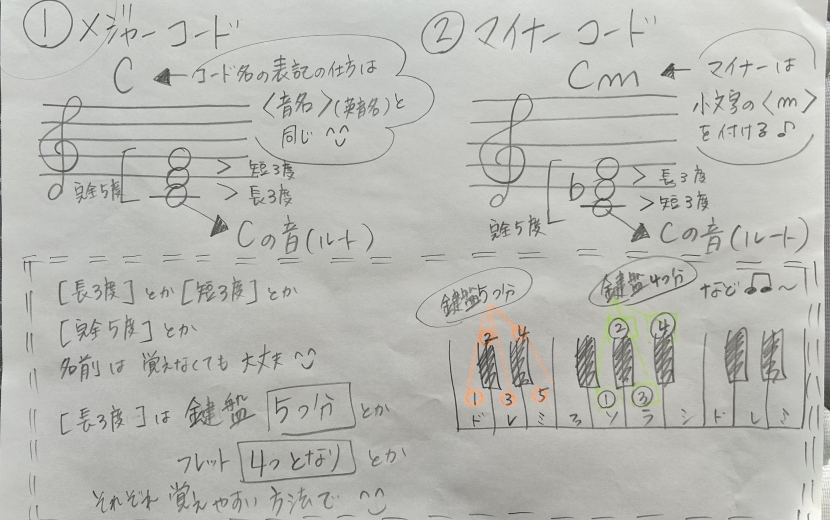 ① メジャーコード
C ← コード名の表記の仕方は
〈音名〉(英音名)と
同じ ^^
完全5度
> 短3度
> 長3度
Cの音(ルート)
② マイナーコード
Cm ← マイナーは
小文字の〈m〉
を付ける♪
♭
完全5度
> 長3度
> 短3度
Cの音(ルート)
[長3度]とか[短3度]とか
[完全5度]とか
名前は 覚えなくても 大丈夫 ^^
[長3度]は 鍵盤 5つ分 とか
フレット 4つとなり とか
それぞれ 覚えやすい 方法で ^^
鍵盤5つ分
鍵盤4つ分
など ♫〜
2 4 ② ④
1 3 5 ① ③
ド レ ミ ファ ソ ラ シ ド レ ミ